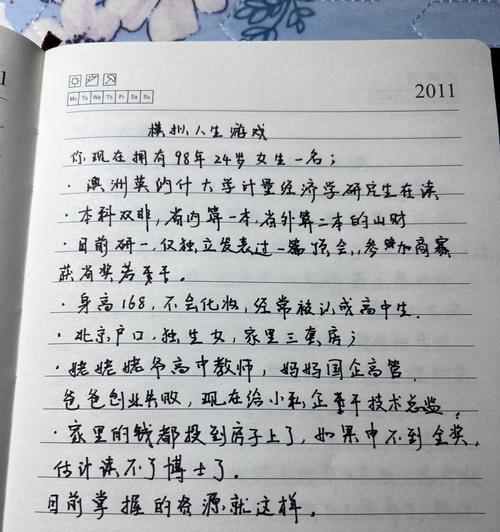 2011
Mo Tu We Th Fr Sa Su
模拟人生游戏
你现在拥有98年24岁女生一名；
·澳洲莫纳什大学计量经济学研究生在读
·本科双非，省内算一本，省外算二本的山财
·目前研一，仅独立发表过一篇顶会，参加商赛
获省奖若干。
·身高168，不会化妆，经常被认成高中生.
·北京户口，独生女，家里三套房；
·姥姥姥爷高中教师，妈妈国企高管，
爸爸创业失败，现在给小私企干技术总监.
·家里的钱都投到房子上了，如果申不到全奖，
估计读不了博士了。
目前掌握的资源就这样。